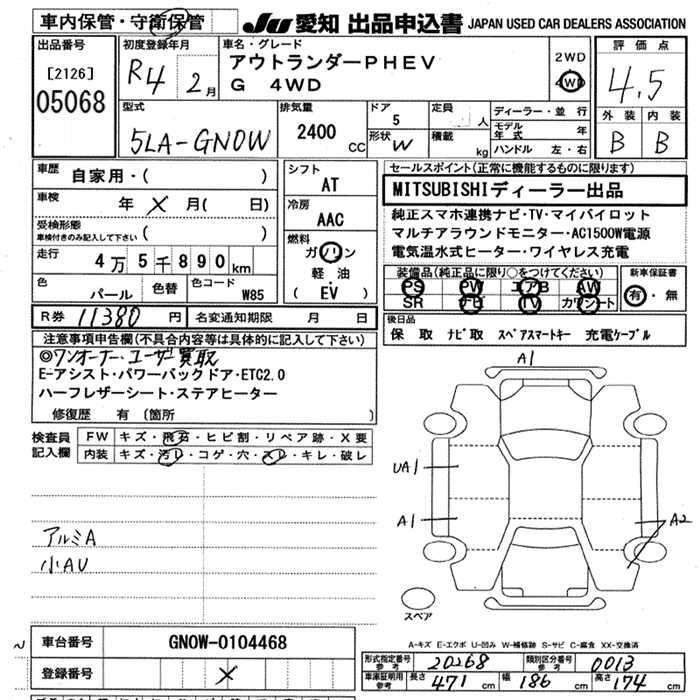 車内保管・守衛保管
JU 愛知 出品申込書 JAPAN USED CAR DEALERS ASSOCIATION
出品番号
[2126]
05068
初度登録年月
R4 2月
車名・グレード
アウトランダーPHEV
G 4WD
2WD
4WD
評価点
4.5
外装 内装
B B
型式
5LA-GN0W
排気量
2400 CC
ドア
5
形状 W
定員 人
積載 kg
ディーラー・並行
モデル年式 年
ハンドル 左・右
車歴
自家用・( )
車検
年 × 月( 日)
受検形態
車検付きのみ記入して下さい ( )
走行
4万5千890km
色
パール
色替
色コード
W85
シフト
AT
冷房
AAC
燃料
ガソリン
軽油
( EV )
セールスポイント(正常に機能するものに限ります)
MITSUBISHIディーラー出品
純正スマホ連携ナビ・TV・マイパイロット
マルチアラウンドモニター・AC1500W電源
電気温水式ヒーター・ワイヤレス充電
装備品(純正品に限り○をつけてください)
PS PW エアB AW
SR ナビ TV カワシート
新車保証書
有・無
R券 11380 円
名変通知期限 月 日
後日品
保 取 ナビ取 スペアスマートキー 充電ケーブル
注意事項申告欄(不具合内容等は具体的に記入して下さい)
◎ワンオーナー・ユーザー買取
E-アシスト・パワーバックドア・ETC2.0
ハーフレザーシート・ステアヒーター
修復歴 有 (箇所 )
検査員記入欄
FW キズ・飛石・ヒビ割・リペア跡・X要
内装 キズ・汚レ・コゲ・穴・スレ・キレ・破レ
アルミA
小AU
A1
UA1
A1
A2
スペア
車台番号 GN0W-0104468
登録番号 ×
A-キズ E-エクボ U-凹み W-補修跡 S-サビ C-腐食 XX-交換済
形式指定番号参考 20268 類別区分番号参考 0013
車庫証明用参考 長さ 471 cm 幅 186 cm 高さ 174 cm